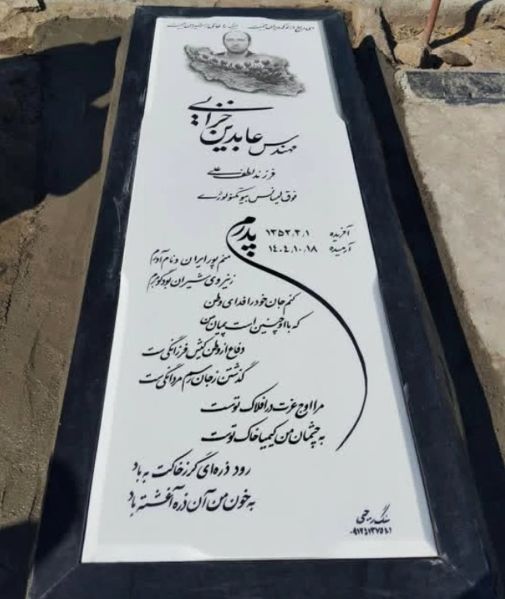 مهندس عابدین خزایی
فرزند لطفعلی
فوق لیسانس بیوتکنولوژی
آفریده ۱۳۵۳.۳.۱
آرمیده ۱۴۰۴.۱۰.۱۸
پدرم
منم پور ایران و نام آدم
ز نیروی شیران بود گوهرم
کنم جان خود را فدای وطن
که با او چنین است پیمان من
دفاع از وطن کیش فرزانگی ست
گذشتن ز جان رسم مردانگی ست
مرا اوج عزت در افلاک توست
به چشمان من کیمیا خاک توست
رود ذره ای گر ز خاکت به باد
به خون من آن ذره آغشته باد
سنگ رجبی